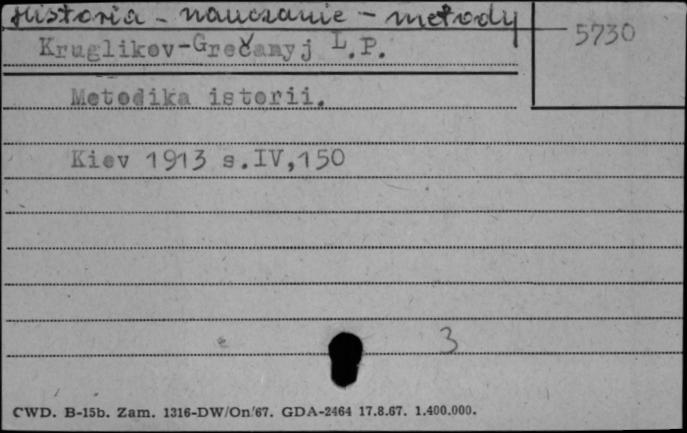 Historia - nauczanie - metody
5730
Kruglikov-Grečanyj L.P.
Metodika istorii.
Kiev 1913 s.IV,150
3
CWD. B-15b. Zam. 1316-DW/On/67. GDA-2464 17.8.67. 1.400.000.